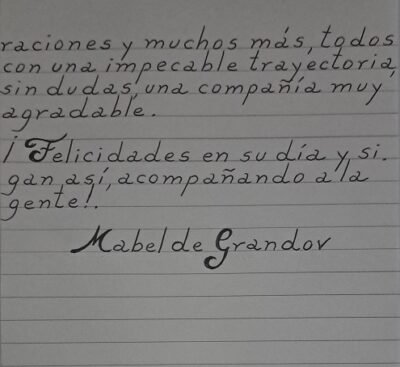 raciones y muchos más, todos
con una impecable trayectoria,
sin dudas, una compañía muy
agradable.
¡Felicidades en su día y si-
gan así, acompañando a la
gente!.
Mabel de Grandov